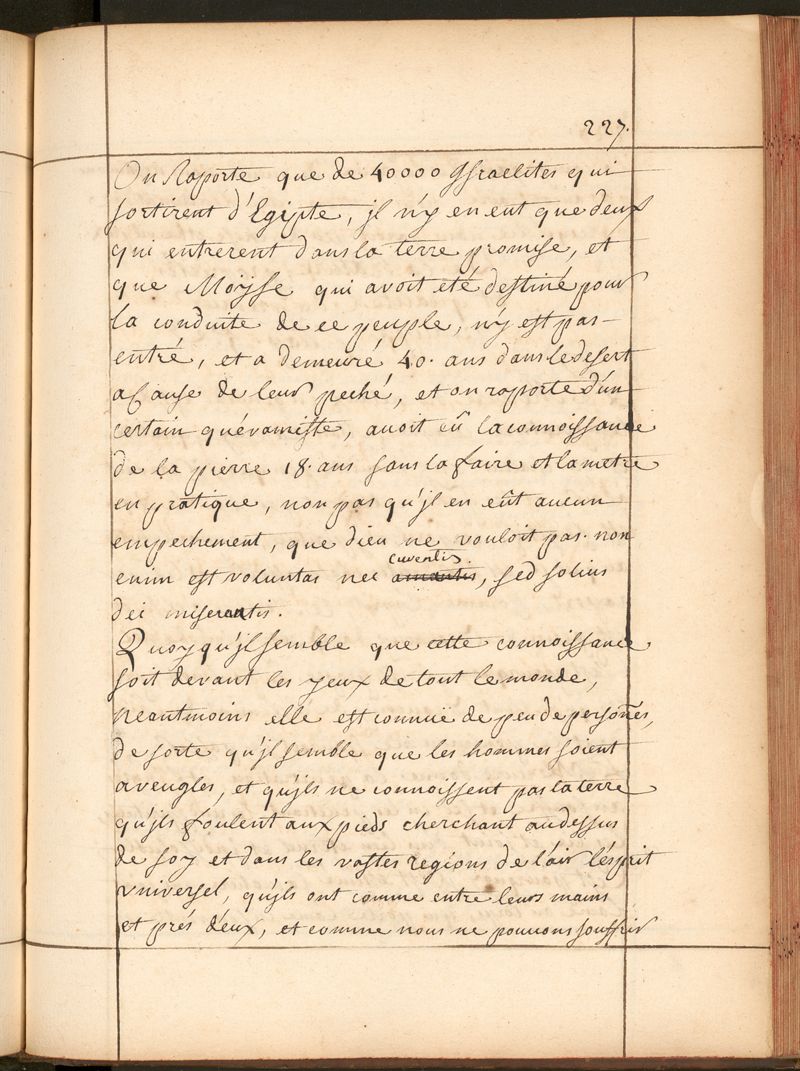 227.
On Raporte que de 40000 Israelites qui
sortirent d'Egipte, jl n'y en eut que deux
qui entrerent dans la terre promise, et
que Moÿse qui avoit eté destiné pour
la conduite de ce peuple, n'y est pas
entré, et a demeuré 40. ans dans le desert
a Cause de leur peché, et on raporte d'un
certain quéramiste, avoit eû la connoissance
de la pierre 18. ans sans la faire et la metre
en pratique, non pas qu'jl en eût aucun
empechement, que dieu ne vouloit pas. non
cuventis.
enim est voluntas nec amantis, sed solius
dei miserantis.
Quoyqu'jl semble que cette connoissance
soit devant les yeux de tout le monde,
neantmoins elle est connuë de peu de persoñes,
de sorte qu'jl semble que les hommes soient
aveugles, et qu'jls ne connoissent pas la terre
qu'jls foulent aux pieds cherchant au dessus
de soy et dans les vastes regions de l'air l'esprit
vniversel, qu'jls ont comme entre leurs mains
et prés d'eux, et comme nous ne pouvons souffrir